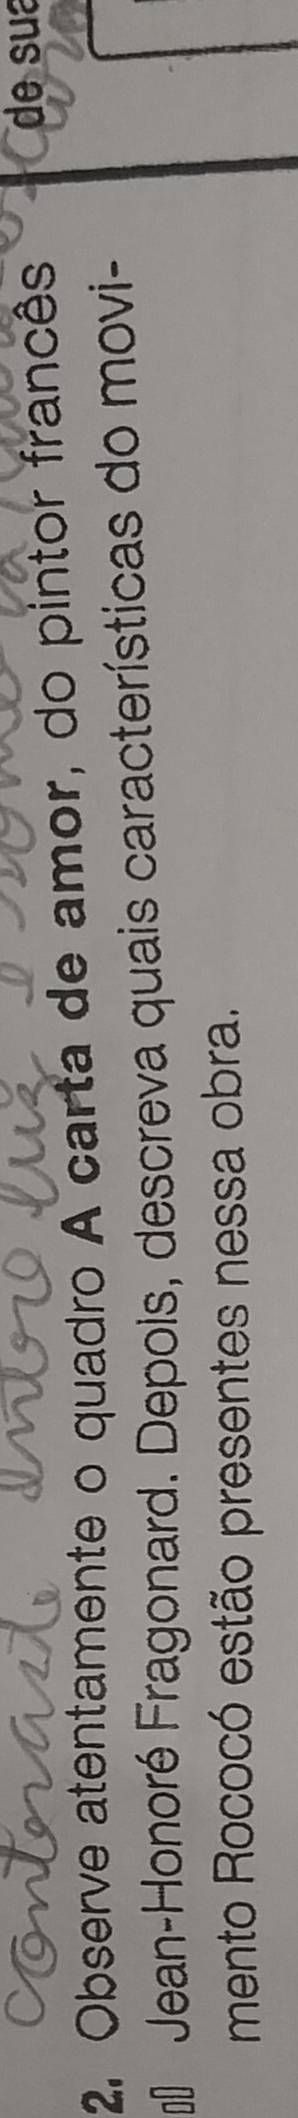 contraste entre luz e
de sua
2. Observe atentamente o quadro A carta de amor, do pintor francês
Jean-Honoré Fragonard. Depois, descreva quais características do movi-
mento Rococó estão presentes nessa obra.